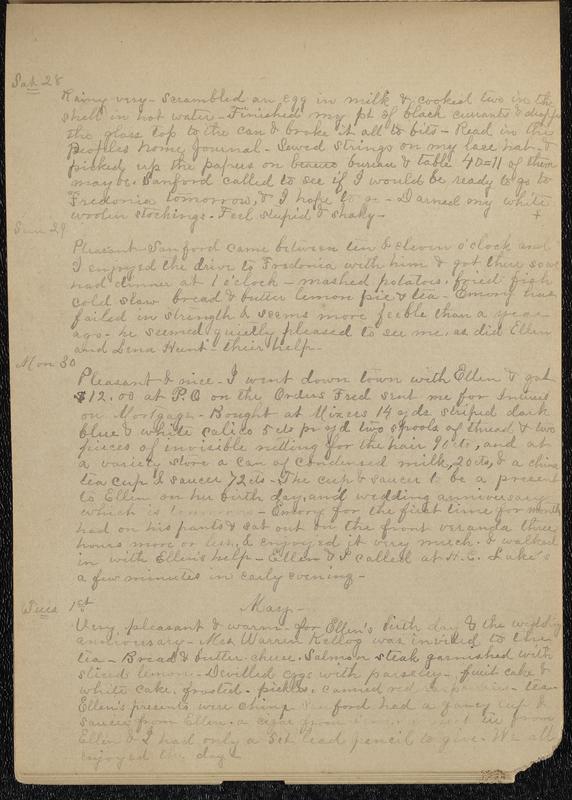 Sat 28
Rainy very - Scrambled an egg in milk & cooked two in the
shell in hot water - Finished my pt of black currants & dropped
the glass top to the can & broke it all to bits - Read in the
Peoples Home Journal - Sewed strings on my lace hat - &
picked up the papers on bureau & table 40=11 of them
maybe. Sanford called to see if I would be ready to go to
Fredonia tomorrow, & I hope to go - Darned my white
woolen stockings. Feel stupid & shaky -
+
Sun 29
Pleasant - Sanford came between ten & eleven o'clock and
I enjoyed the drive to Fredonia with him & got there so we
had dinner at 1 o'clock - mashed potatoes, fried fish
cold slaw bread & butter lemon pie & tea - Emory has
failed in strength & seems more feeble than a year
ago - he seemed quietly pleased to see me, as did Ellen
and Lena Hunt - their help -
Mon 30
Pleasant & nice - I went down town with Ellen & got
$12.00 at P.O on the Orders Fred sent me for Interest
on Mortgage - Bought at Mixers 14 yds striped dark
blue & white calico 5 cts pr yd two spools of thread, & two
pieces of invisible netting for the hair 90 cts, and at
a variety store a can of condensed milk, 20 cts, & a china
tea cup & saucer 72 cts - The cup & saucer to be a present
to Ellen on her birth day, and wedding anniversary
which is tomorrow - Emory for the first time for months
had on his pants & sat out on the front veranda three
hours more or less, & enjoyed it very much. & walked
in with Ellen's help - Ellen & I called at H.C. Lake's
a few minutes in early evening -
Tues 1st May -
Very pleasant & warm for Ellen's birth day & the wedding
anniversary - Mrs Warren Kellog was invited to
tea - Bread & butter cheese, Salmon steak garnished with
sliced lemon - Devilled eggs with parsley - fruit cake &
white cake, frosted - pickles, canned red - tea -
Ellen's presents were china Sanford had a fancy cup &
saucer from Ellen. a from
Ellen & I had only a 5ct lead pencil to give. We all
enjoyed the day